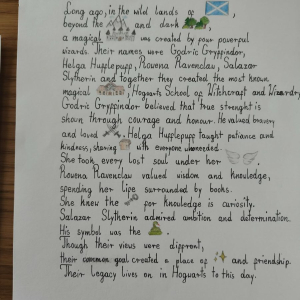 Long ago, in the wild lands of ,
beyond the and dark
a magical was created by four powerful
wizards. Their names were Godric Gryffindor,
Helga Hufflepuff, Rovena Ravenclaw, Salazar
Slytherin and together they created the most known
magical , Hogwarts School of Witchcraft and Wizardry
Godric Gryffindor believed that true strenght is
shown through courage and honour. He valued bravery
and loved . Helga Hufflepuff taught patience and
kindness, sharing with everyone who needed.
She took every lost soul under her .
Rovena Ravenclaw valued wisdom and knowledge,
spending her life surrounded by books.
She knew the for knowledge is curiosity.
Salazar Slytherin admired ambition and determination.
His symbol was the .
Though their views were different,
their common goal created a place of and friendship.
Their legacy lives on in Hogwarts to this day.